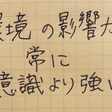 環境の影響力
常に
意識より強い